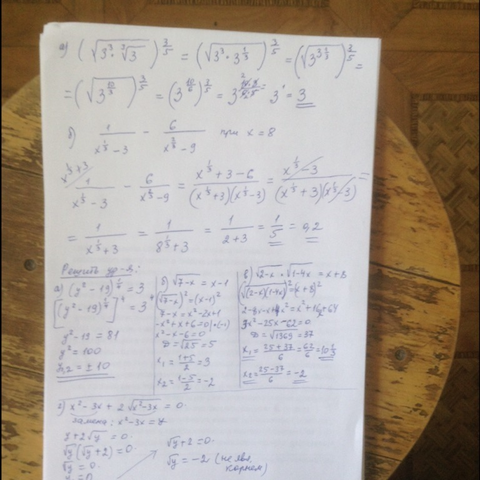 а) (√(3³·∛3))^(3/5) = (√(3³·3^(1/3)))^(3/5) = (√(3^(3 1/3)))^(3/5) =
= (√(3^(10/3)))^(3/5) = (3^(10/6))^(3/5) = 3 = 3¹ = 3
б) 1/(x^(1/3) − 3) − 6/(x^(2/3) − 9) при x = 8
x^(1/3)+3
1/(x^(1/3) − 3) − 6/(x^(2/3) − 9) = (x^(1/3) + 3 − 6)/((x^(1/3)+3)(x^(1/3)−3)) = (x^(1/3) − 3)/((x^(1/3)+3)(x^(1/3)−3)) =
= 1/(x^(1/3)+3) = 1/(8^(1/3)+3) = 1/(2+3) = 1/5 = 0,2
Решить ур-я:
а) (y² − 19)^(1/4) = 3
[(y² − 19)^(1/4)]⁴ = 3⁴
y² − 19 = 81
y² = 100
y1,2 = ± 10
б) √(7−x) = x − 1
(√(7−x))² = (x−1)²
7 − x = x² − 2x + 1
x² − x − 6 = 0
D = √25 = 5
x₁ = (1+5)/2 = 3
x₂ = (1−5)/2 = −2
в) √(2−x) · √(1−4x) = x + 8
3x² − 25x − 62 = 0
D = √1369 = 37
x₁ = (25+37)/6 = 62/6 = 10 1/3
x₂ = (25−37)/6 = −2
г) x² − 3x + 2√(x²−3x) = 0
замена: x² − 3x = y
y + 2√y = 0
√y(√y + 2) = 0
√y = 0
√y + 2 = 0
√y = −2 (не явл.
корнем)